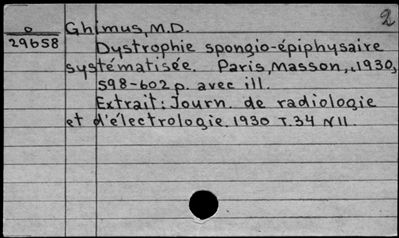 2
o
29658
Ghimus, M.D.
Dystrophie spongio-épiphysaire
systématisée. Paris, Masson, 1930,
598-602 p. avec ill.
Extrait: Journ. de radiologie
et d'électrologie. 1930 T.34 N11.